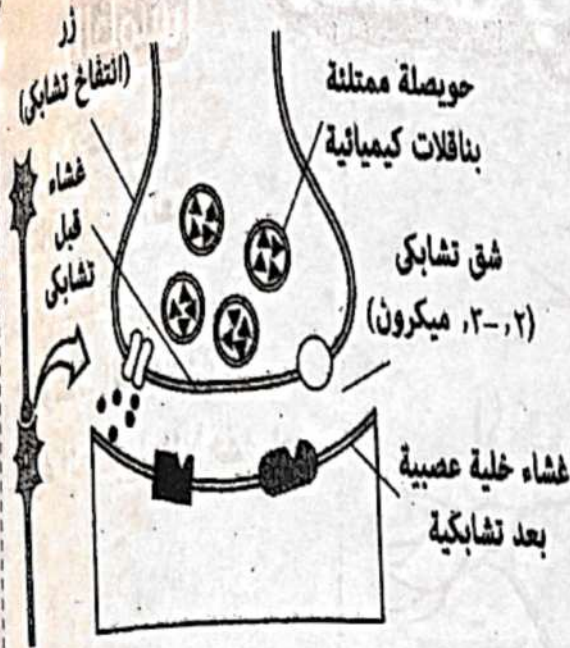 زر
(انتفاخ تشابكى)
غشاء
قبل
تشابكى
حويصلة ممتلئة
بناقلات كيميائية
شق تشابكى
(٢, -٣, ميكرون)
غشاء خلية عصبية
بعد تشابكية